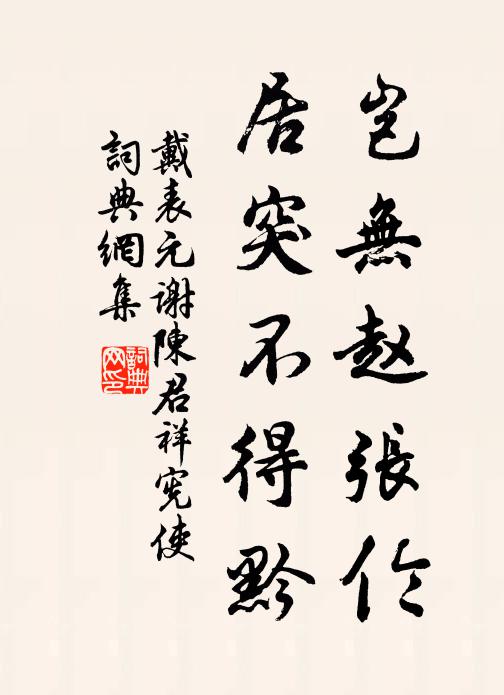 岂無赵張
居突不得黔
戴表元谢陳君祥宪使
詞典網集
詞典
网印